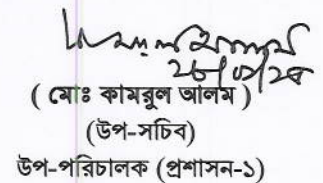 ( মোঃ কামরুল আলম )
(উপ-সচিব)
উপ-পরিচালক (প্রশাসন-১)